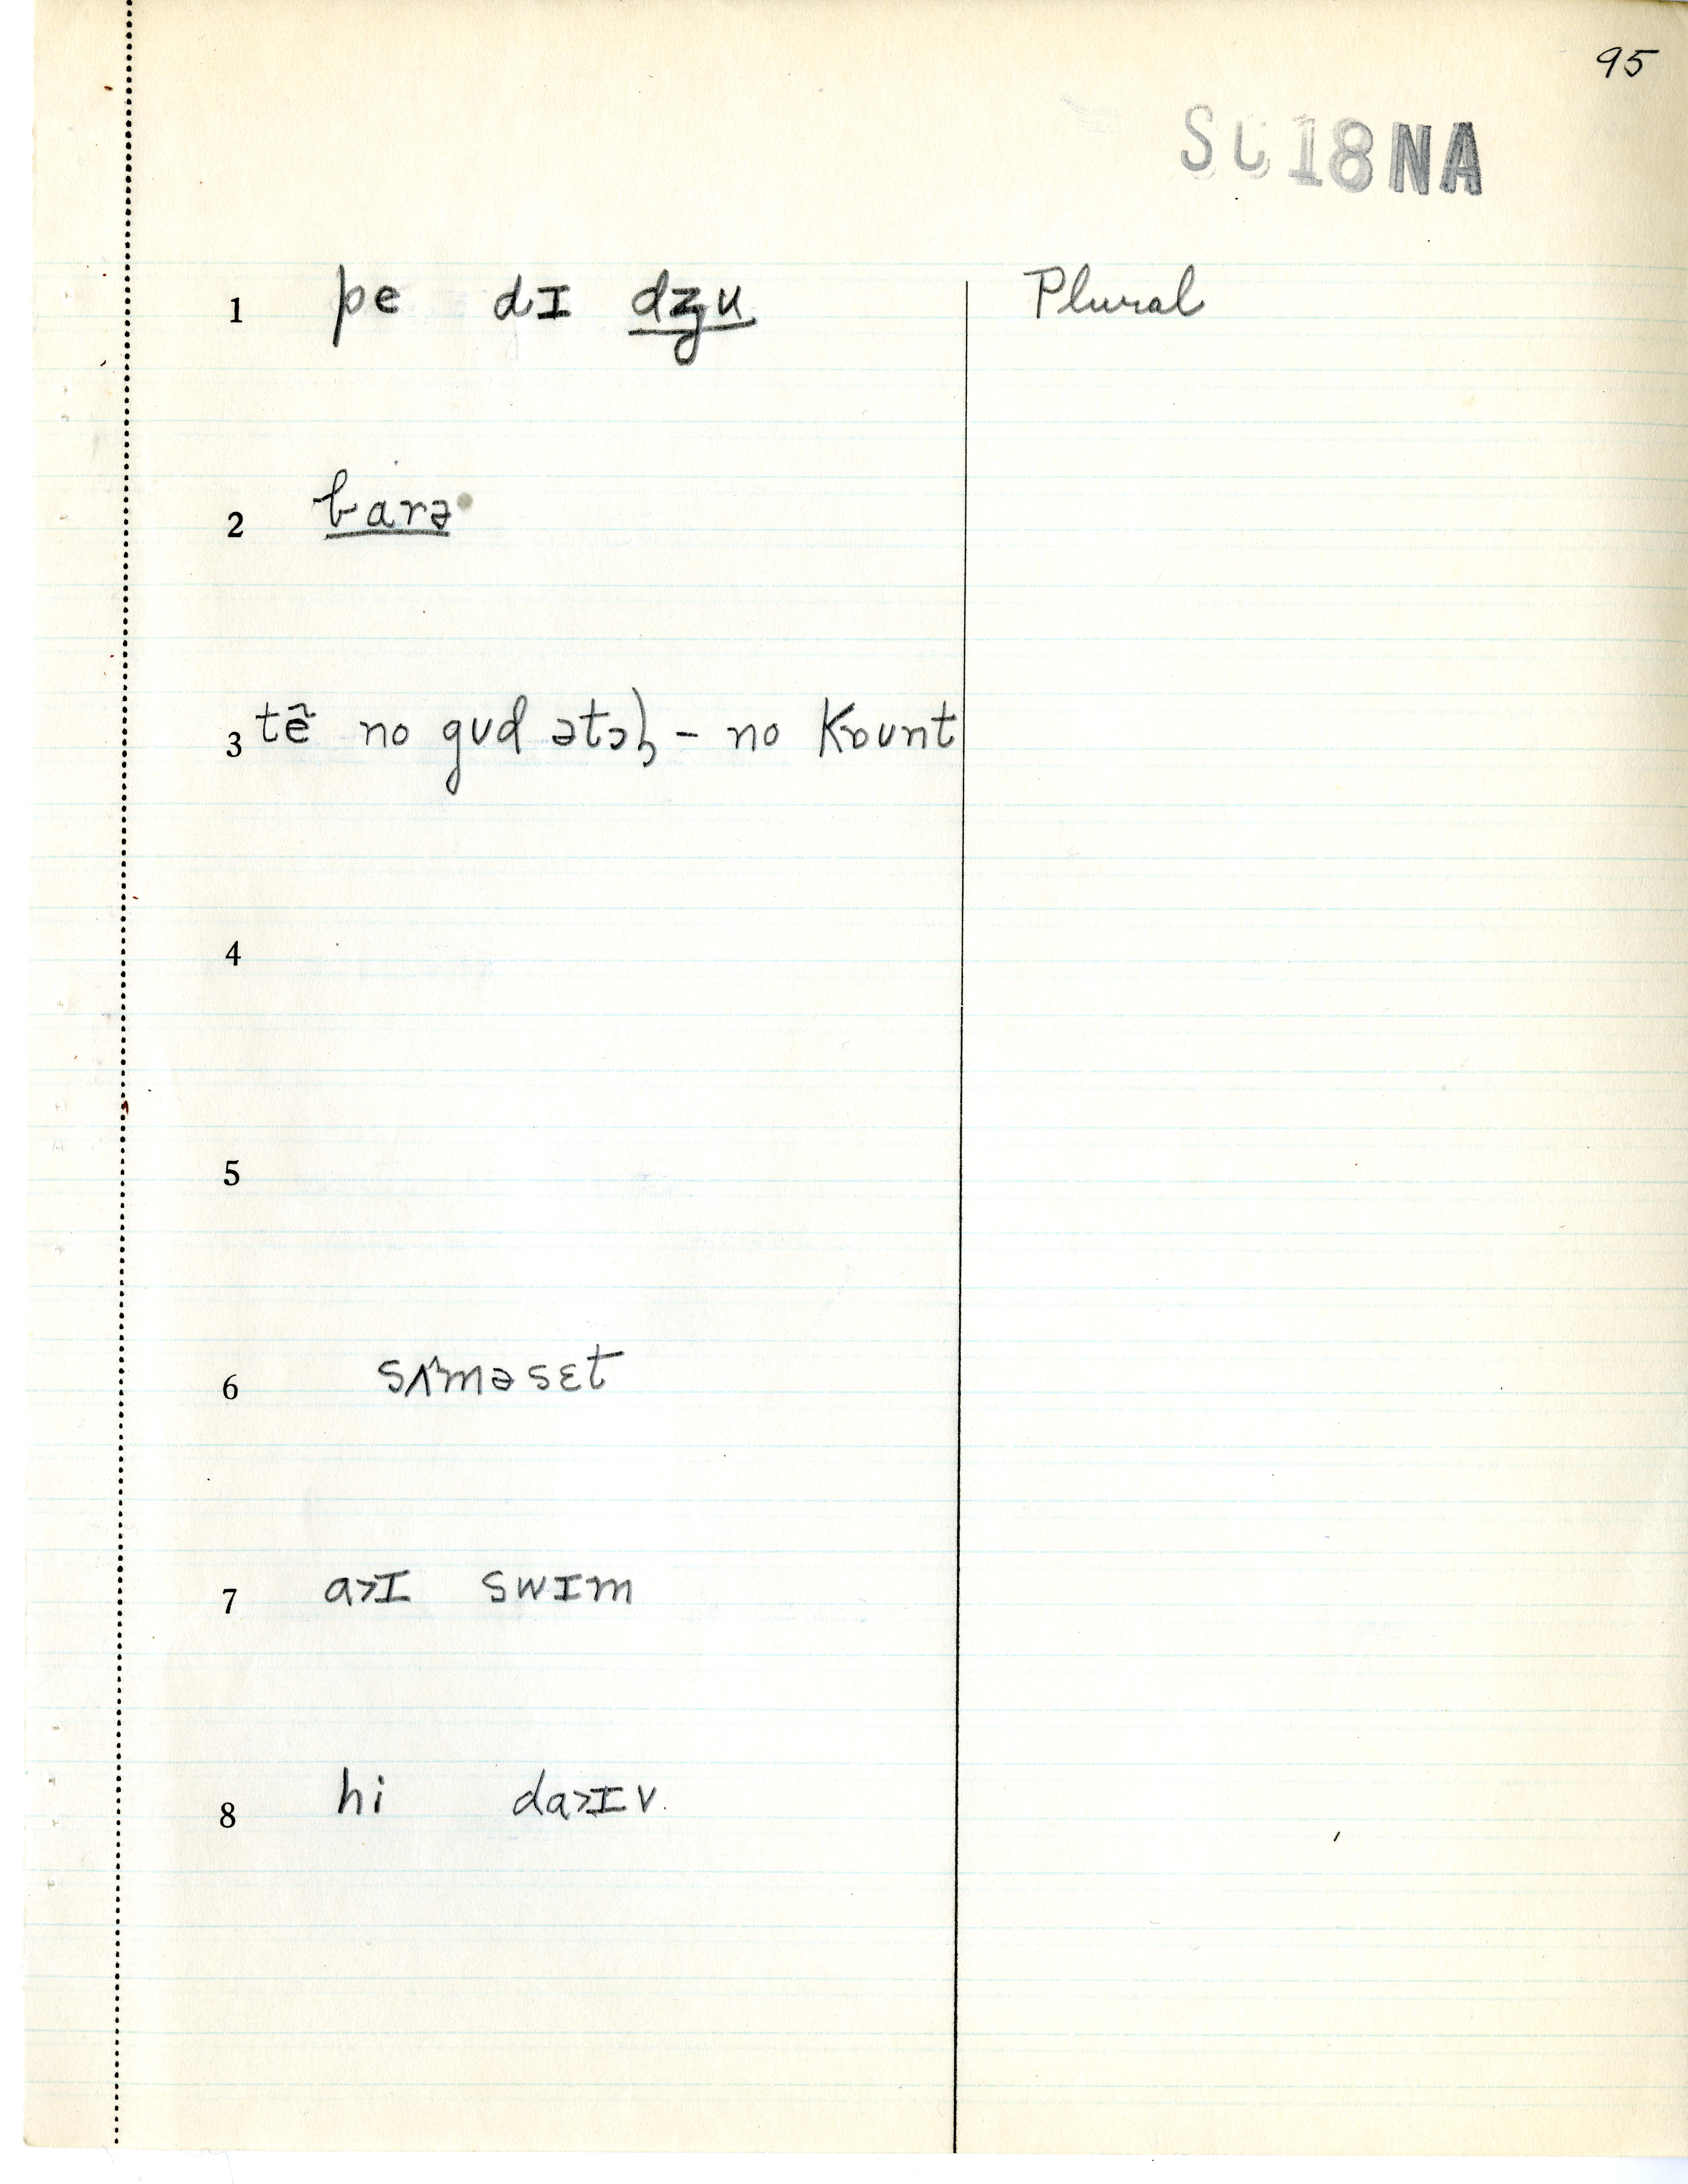 95
SC18NA
1 pe dɪ dʒu Plural
2 barə
3 tẽ no gʊd ətɔl̩ - no kɒunt
4
5
6 sʌ̃məsɛt
7 a>ɪ swɪm
8 hi da>ɪv